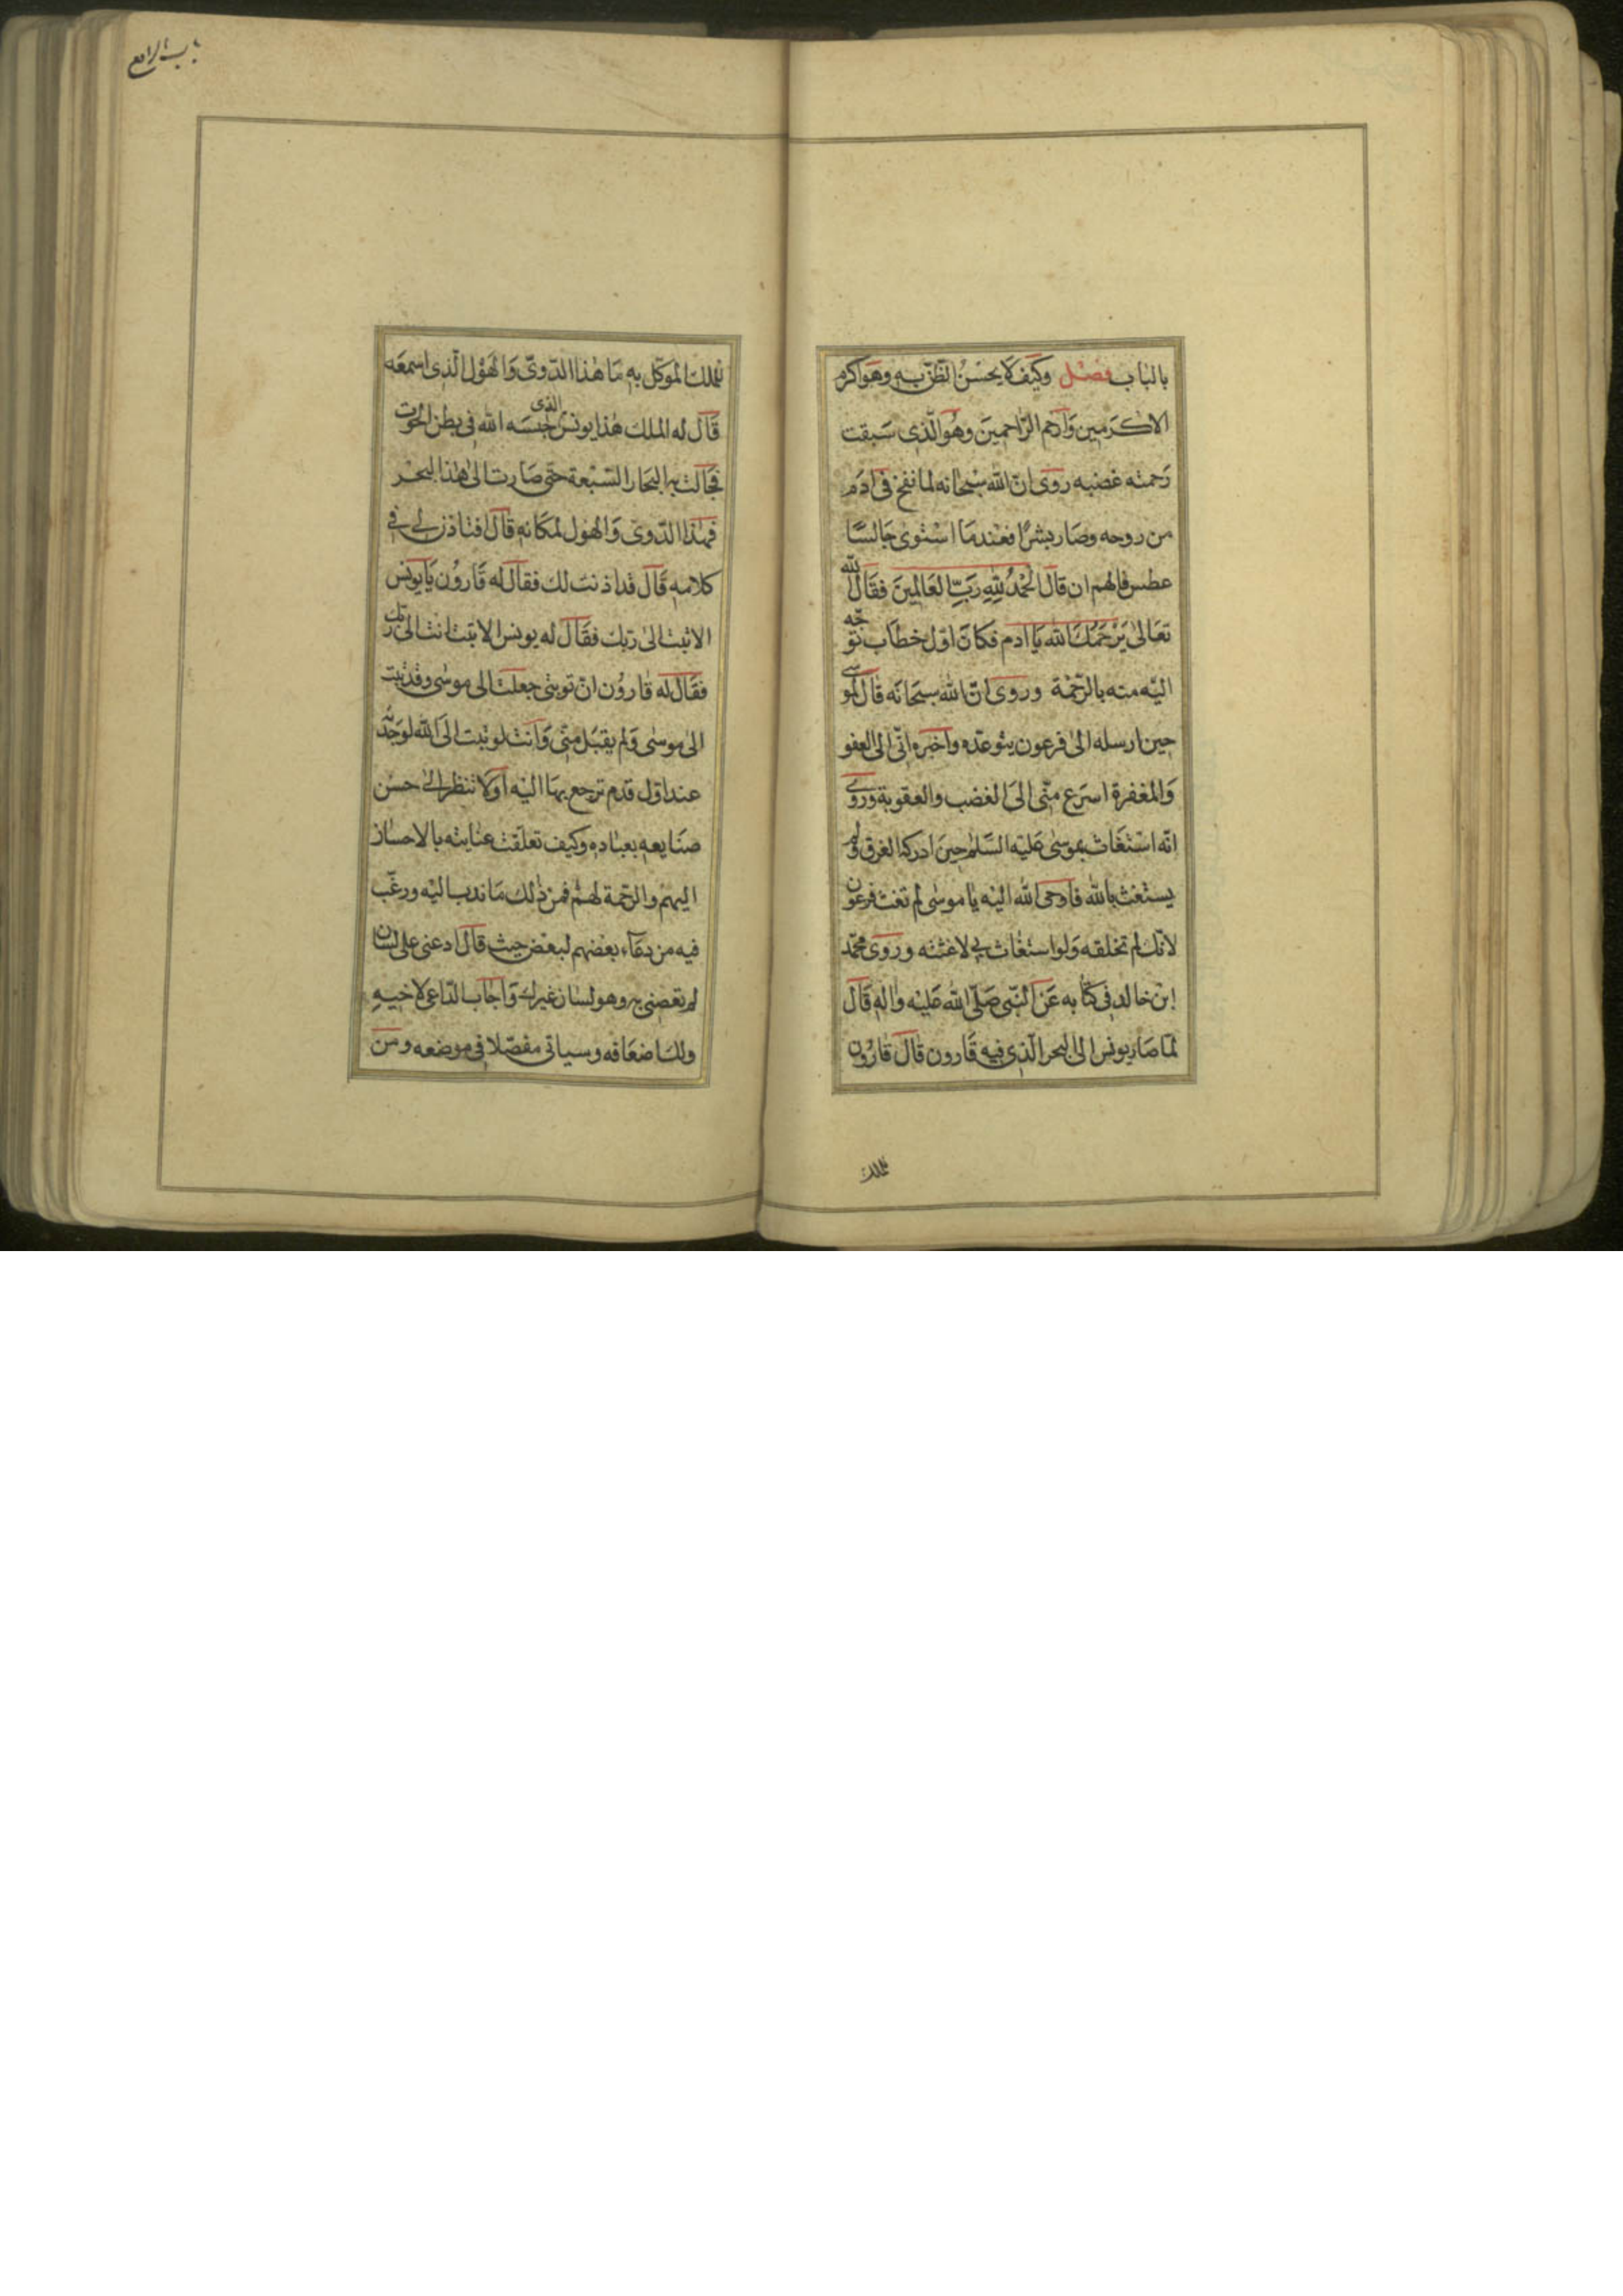 باب الرابع
بالباب فصل وكيف لا يحسن الظن به وهو اكرم
الاكرمين وارحم الراحمين وهو الذى سبقت
رحمته غضبه روى ان الله سبحانه لما نفخ فى ادم
من روحه وصار بشرا فعندما استوى جالسا
عطس فالهم ان قال الحمد لله رب العالمين فقال الله
تعالى يرحمك الله يا ادم فكان اول خطاب توجه
اليه منه بالرحمة وروى ان الله سبحانه قال لموسى
حين ارسله الى فرعون يتوعده واخبره انى الى العفو
والمغفرة اسرع منى الى الغضب والعقوبة وروى
انه استغاث بموسى عليه السلم حين ادركه الغرق ولم
يستغث بالله فاوحى الله اليه يا موسى لم تغث فرعون
لانك لم تخلقه ولو استغاث بى لاغثته وروى محمد
ابن خالد فى كتابه عن النبى صلى الله عليه واله قال
لما صار يونس الى البحر الذى فيه قارون قال قارون
للملك
للملك الموكل به ما هذا الدوى والهول الذى اسمعه
قال له الملك هذا يونس الذى حبسه الله فى بطن الحوت
فجالت به البحار السبعة حتى صارت الى هذا البحر
فهذا الدوى والهول لمكانه قال افتاذن لى فى
كلامه قال قد اذنت لك فقال له قارون يا يونس
الا تبت الى ربك فقال له يونس الا تبت انت الى ربك
فقال له قارون ان توبتى جعلت الى موسى وقد تبت
الى موسى ولم يقبل منى وانت لو تبت الى الله لوجدته
عند اول قدم ترجع بها اليه اولا تنظر الى حسن
صنايعه بعباده وكيف تعلقت عنايته بالاحسان
اليهم والرحمة لهم فمن ذلك ما ندب اليه ورغب
فيه من دعاء بعضهم لبعض حيث قال ادعنى على لسان
لم تعصنى به وهو لسان غيرك واجاب الداعى لاخيه
ولك اضعافه وسياتى مفصلا فى موضعه ومن